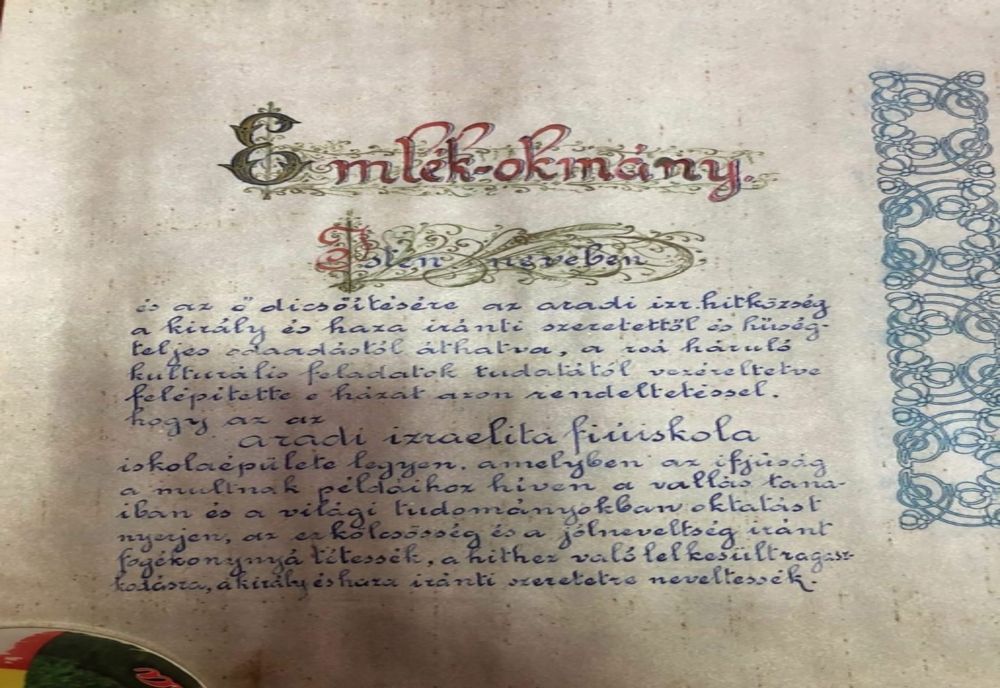 Emlék-okmány.
Isten nevében
és az Ő dicsőitésére az aradi izr. hitközség
a király és haza iránti szeretettől és hűség-
teljes odaadástól áthatva, a reá háruló
kulturális feladatok tudatától vezéreltetve
felépitette e házat azon rendeltetéssel,
hogy az az
aradi izraelita fiúiskola
iskolaépülete legyen, amelyben az ifjúság
a multnak példáihoz híven a vallás tana-
iban és a világi tudományokban oktatást
nyerjen, az erkölcsösség és a jólneveltség iránt
fogékonynyá tétessék, a hithez való lelkesült ragasz-
kodásra, a király és haza iránti szeretetre neveltessék.